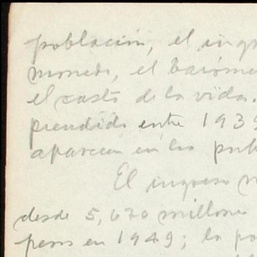 población, el ingr
moneda, el baróme
el costo de la vida.
prendido entre 1939
aparecen en las pub
El ingreso n
desde 5,670 millone
pesos en 1949; la po